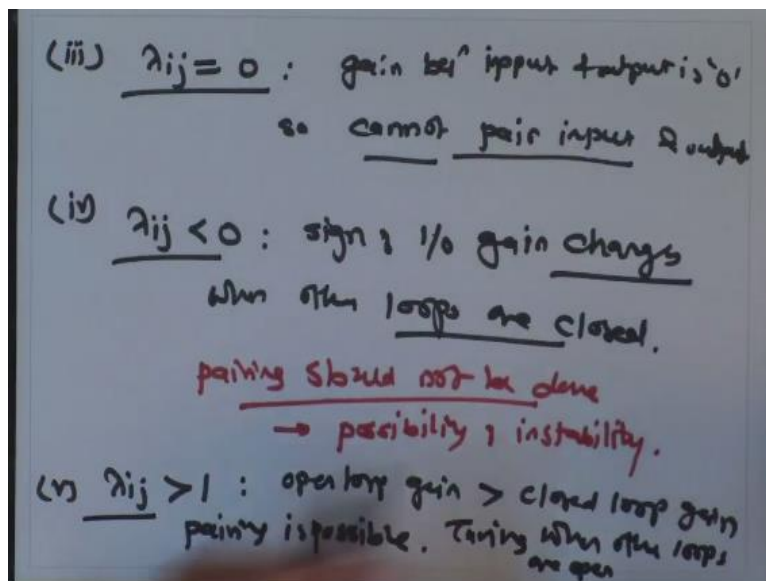 (iii) λij = 0 : gain betn inpput & output is '0'
so cannot pair input & output
(iv) λij < 0 : sign of i/o gain changs
when other loops are closed.
pairing should not be done
→ possibility of instability.
(v) λij > 1 : open loop gain > closed loop gain
pairing is possible. Tuning when other loops
are open